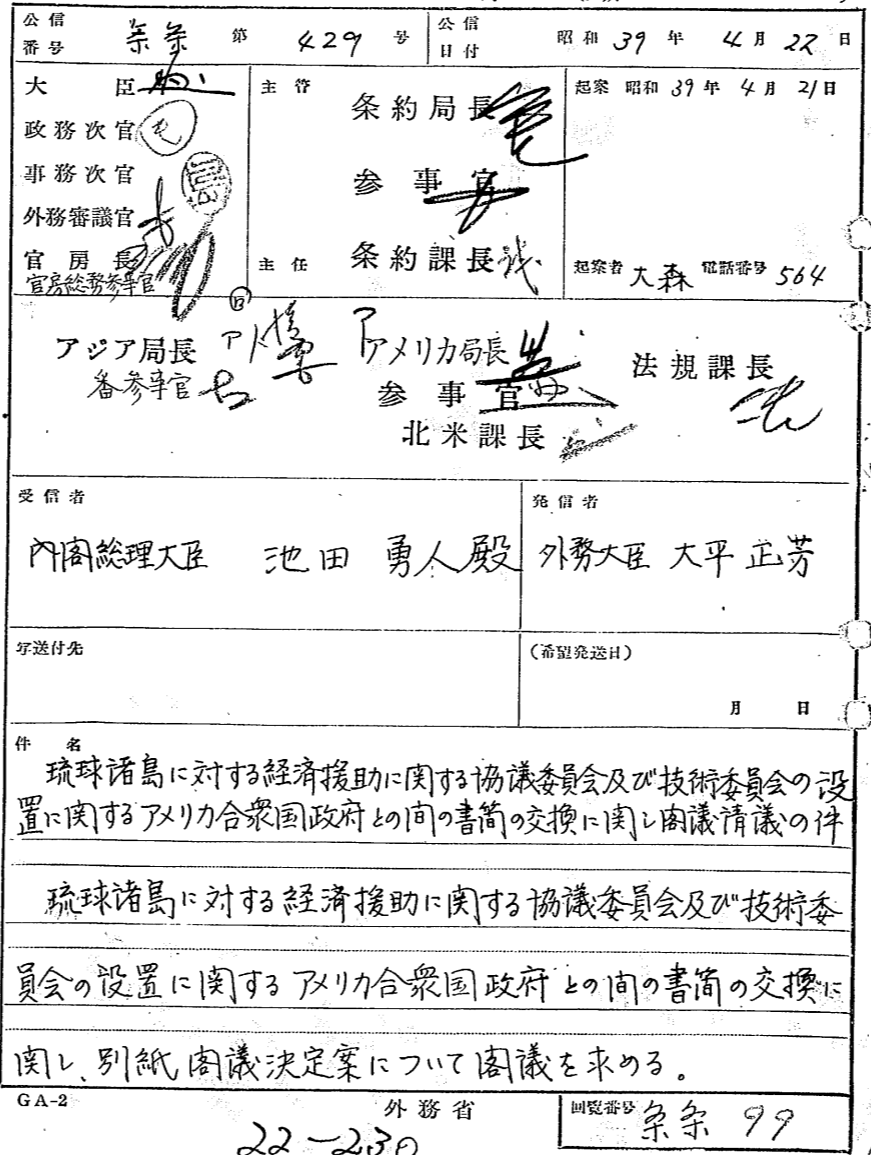 公信番号 条条 第 429 号 公信日付 昭和 39 年 4 月 22 日
大臣
政務次官
事務次官
外務審議官
官房長
官房総務参事官
主管 条約局長
参事官
主任 条約課長
起案 昭和 39 年 4 月 21 日
起案者 大森 電話番号 564
アジア局長 アメリカ局長 法規課長
参事官 参事官
北米課長
受信者
内閣総理大臣 池田 勇人殿
発信者
外務大臣 大平 正芳
写送付先
(希望発送日)
月 日
件名
琉球諸島に対する経済援助に関する協議委員会及び技術委員会の設
置に関するアメリカ合衆国政府との間の書簡の交換に関し閣議請議の件
琉球諸島に対する経済援助に関する協議委員会及び技術委
員会の設置に関するアメリカ合衆国政府との間の書簡の交換に
関し、別紙閣議決定案について閣議を求める。
GA-2 外務省 回覧番号 条条 99